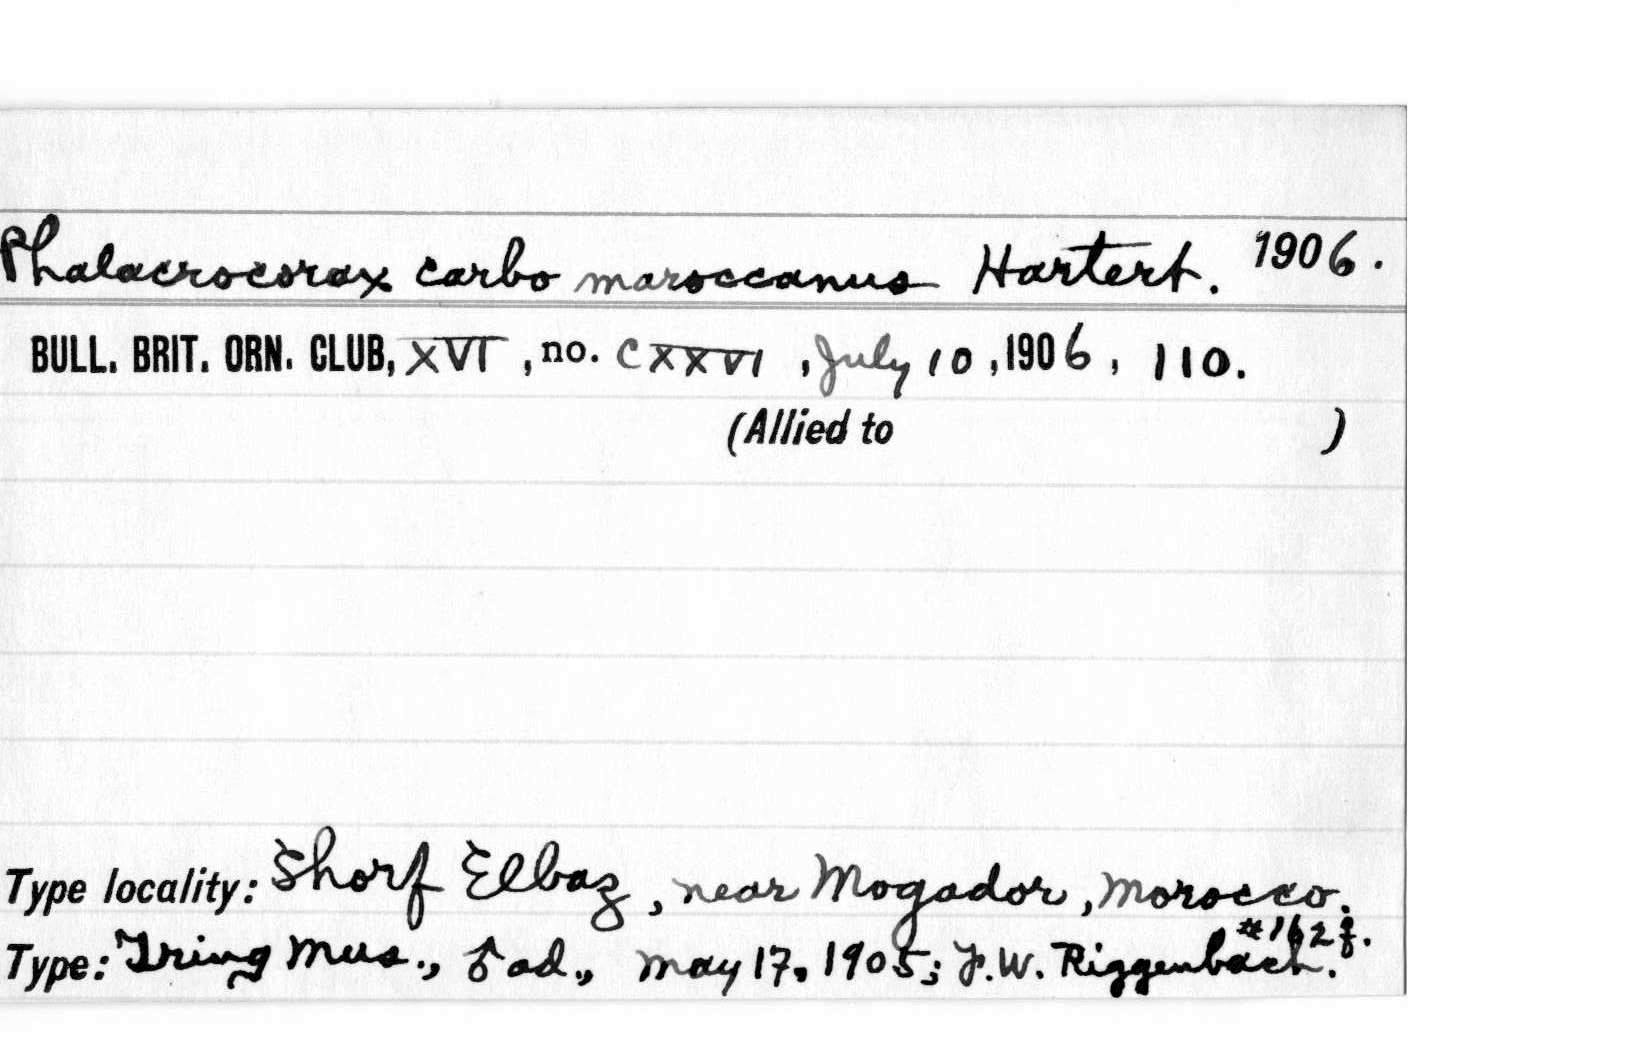 Phalacrocorax carbo maroccanus Hartert. 1906.
BULL. BRIT. ORN. CLUB, XVI, no. CXXVI, July 10, 1906, 110.
(Allied to )
Type locality: Shorf Elbaz, near Mogador, Morocco.
Type: Tring Mus., ♂ ad., May 17, 1905; F.W. Riggenbach.